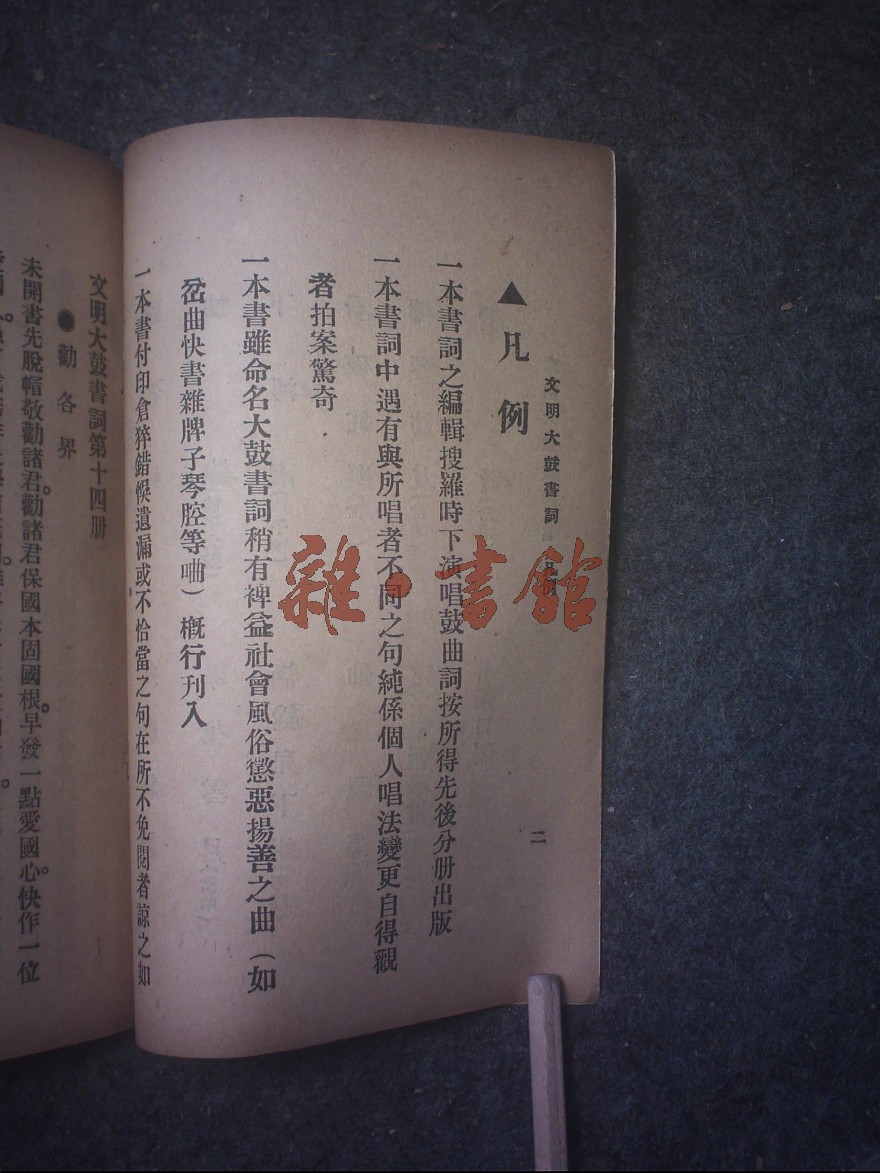 文明大鼓書詞
二
▲凡例
一本書詞之編輯搜羅時下演唱鼓曲詞按所得先後分册出版
一本書詞中遇有與所唱者不同之句純係個人唱法變更自得觀
者拍案驚奇
一本書雖命名大鼓書詞稍有裨益社會風俗懲惡揚善之曲（如
岔曲快書雜牌子琴腔等曲）概行刊入
一本書付印倉猝錯悞遺漏或不恰當之句在所不免閱者諒之如
文明大鼓書詞第十四册
●勸各界
未開書先脫帽敬勸諸君。勸諸君保國本固國根。早發一點愛國心。快作一位
雜·書館